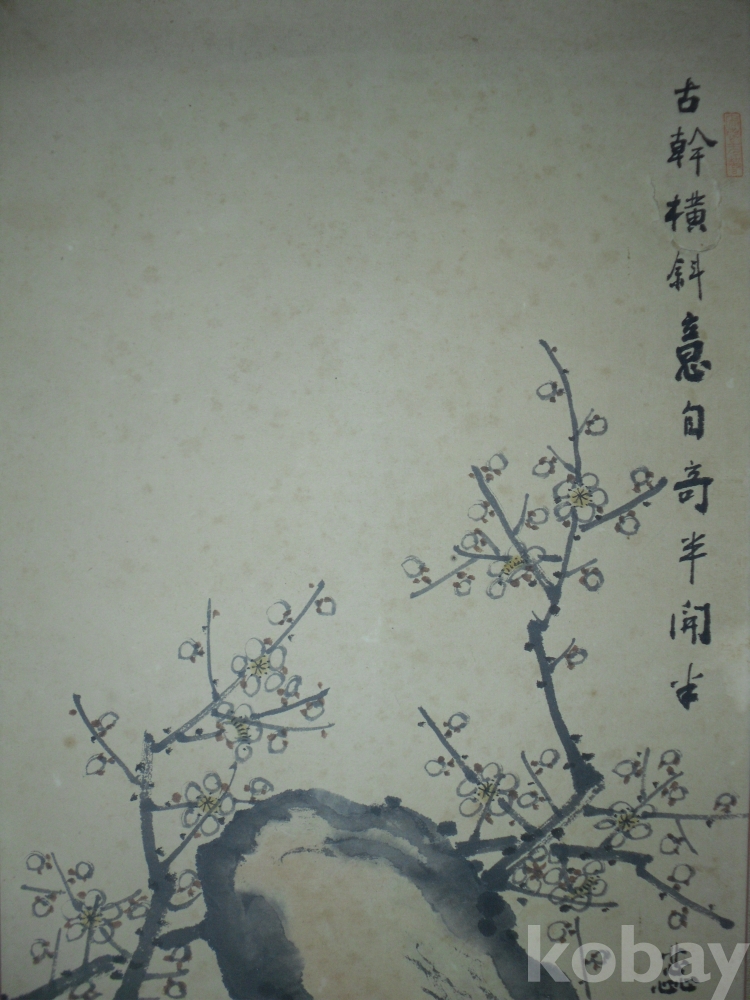 古幹橫斜意自奇半開半
kobay